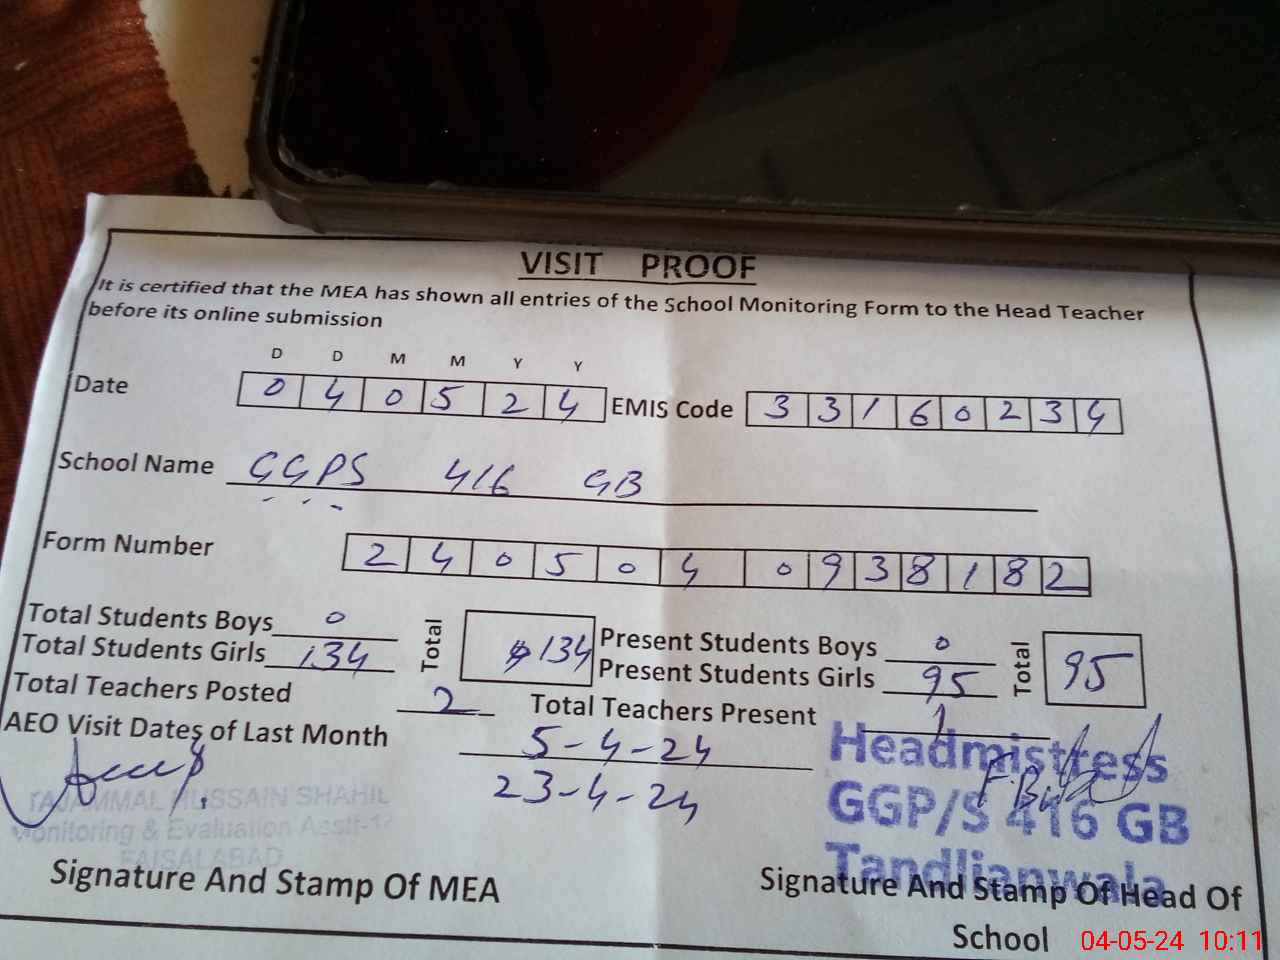 VISIT PROOF
It is certified that the MEA has shown all entries of the School Monitoring Form to the Head Teacher
before its online submission
D D M M Y Y
Date 0 4 0 5 2 4 EMIS Code 3 3 1 6 0 2 3 4
School Name GGPS 416 GB
Form Number 2 4 0 5 0 4 0 9 3 8 1 8 2
Total Students Boys 0 Total 134 Present Students Boys 0 Total 95
Total Students Girls 134 Present Students Girls 95
Total Teachers Posted 2 Total Teachers Present 1
AEO Visit Dates of Last Month 5-4-24
23-4-24
TAJAMMAL HUSSAIN SHAHI
Monitoring & Evaluation Asstt-12
FAISALABAD
Headmistress
GGP/S 416 GB
Tandlianwala
Signature And Stamp Of MEA
Signature And Stamp Of Head Of
School
04-05-24 10:11